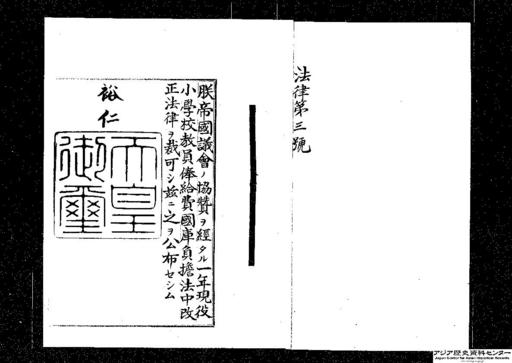 法律第三號
朕帝國議會ノ協贊ヲ經タル一年現役
小學校教員俸給費國庫負擔法中改
正法律ヲ裁可シ玆ニ之ヲ公布セシム
裕仁
天皇
御璽
アジア歴史資料センター
Japan Center for Asian Historical Records